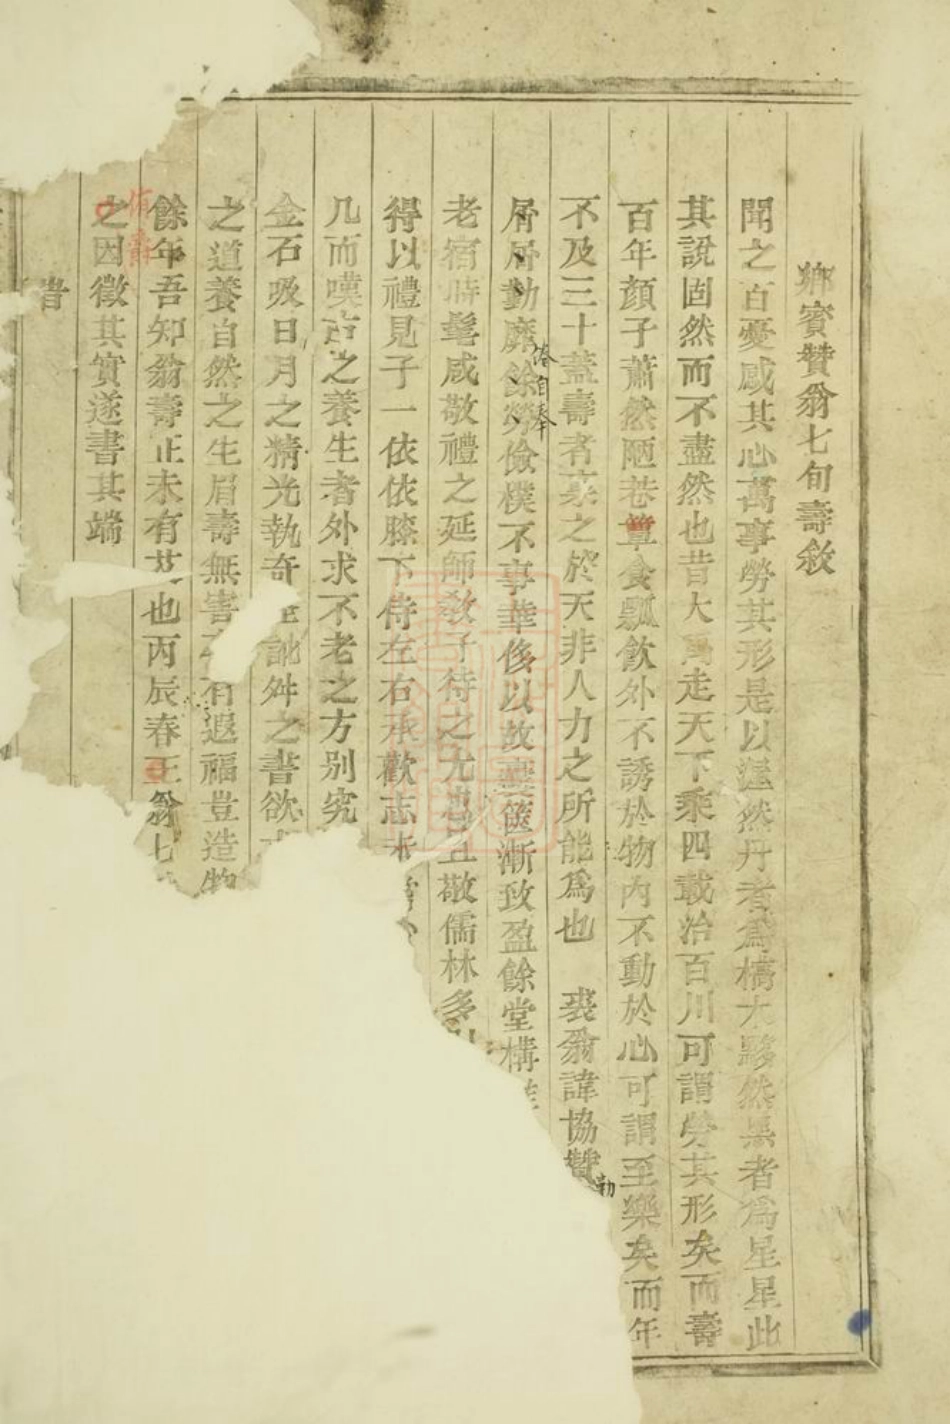 鄉賓贊翁七旬壽敘
聞之百憂感其心萬事勞其形是以渥然丹者爲槁木黟然黑者爲星星此
其說固然而不盡然也昔大禹走天下乘四載治百川可謂勞其形矣而壽
百年顏子蕭然陋巷簞食瓢飲外不誘於物內不動於心可謂至樂矣而年
不及三十蓋壽者稟之於天非人力之所能爲也 裘翁諱協贊
屑屑勤
餘勞儉樸不事華侈以故囊篋漸致盈餘堂構
老宿時髦咸敬禮之延師教子待之尤忠且敬儒林多
得以禮見子一依依膝下侍左右承歡志
几而嘆古之養生者外求不老之方别究
金石吸日月之精光執奇
訛舛之書欲
之道養自然之生眉壽無害
有遐福豈造物
餘年吾知翁壽正未有艾也丙辰春王翁七
之因徵其實遂書其端